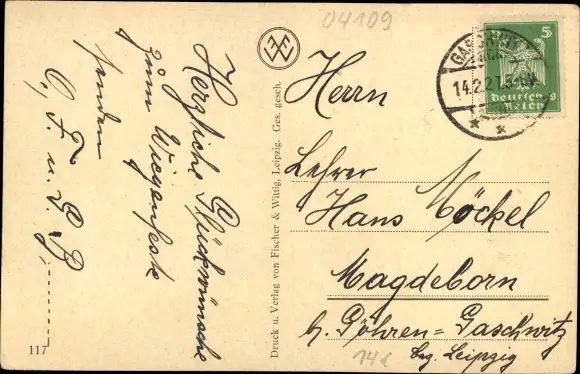 04109
Herzliche Glückwünsche
zum Wiegenfeste
senden
O. F. u. L. B
117
Druck u. Verlag von Fischer & Wittig, Leipzig. Ges. gesch.
14.2.27
5
Deutsches
Reich
Herrn
Lehrer
Hans Möckel
Magdeborn
b. Göhren=Gaschwitz
Bez. Leipzig